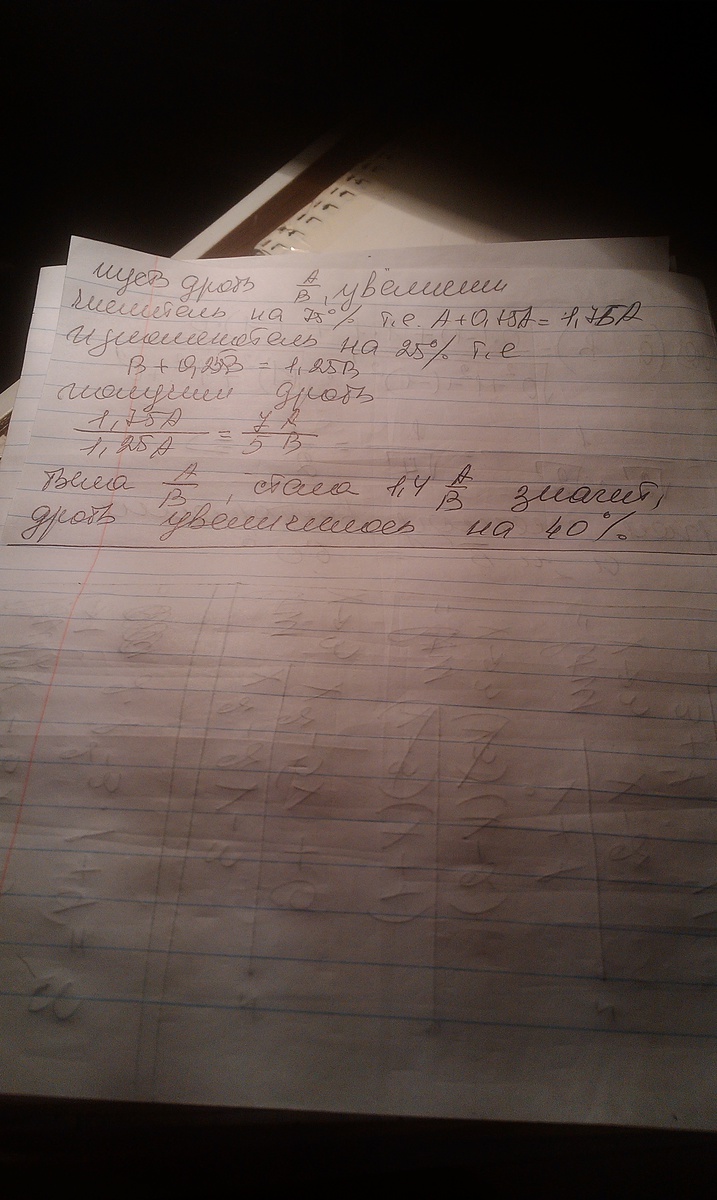 пусть дробь A/B, увеличим
числитель на 75% т.е. A+0,75A = 1,75A
и знаменатель на 25% т.е
B + 0,25B = 1,25B
получим дробь
1,75A/1,25A = 7A/5B
Была A/B, стала 1,4 A/B значит,
дробь увеличилось на 40%